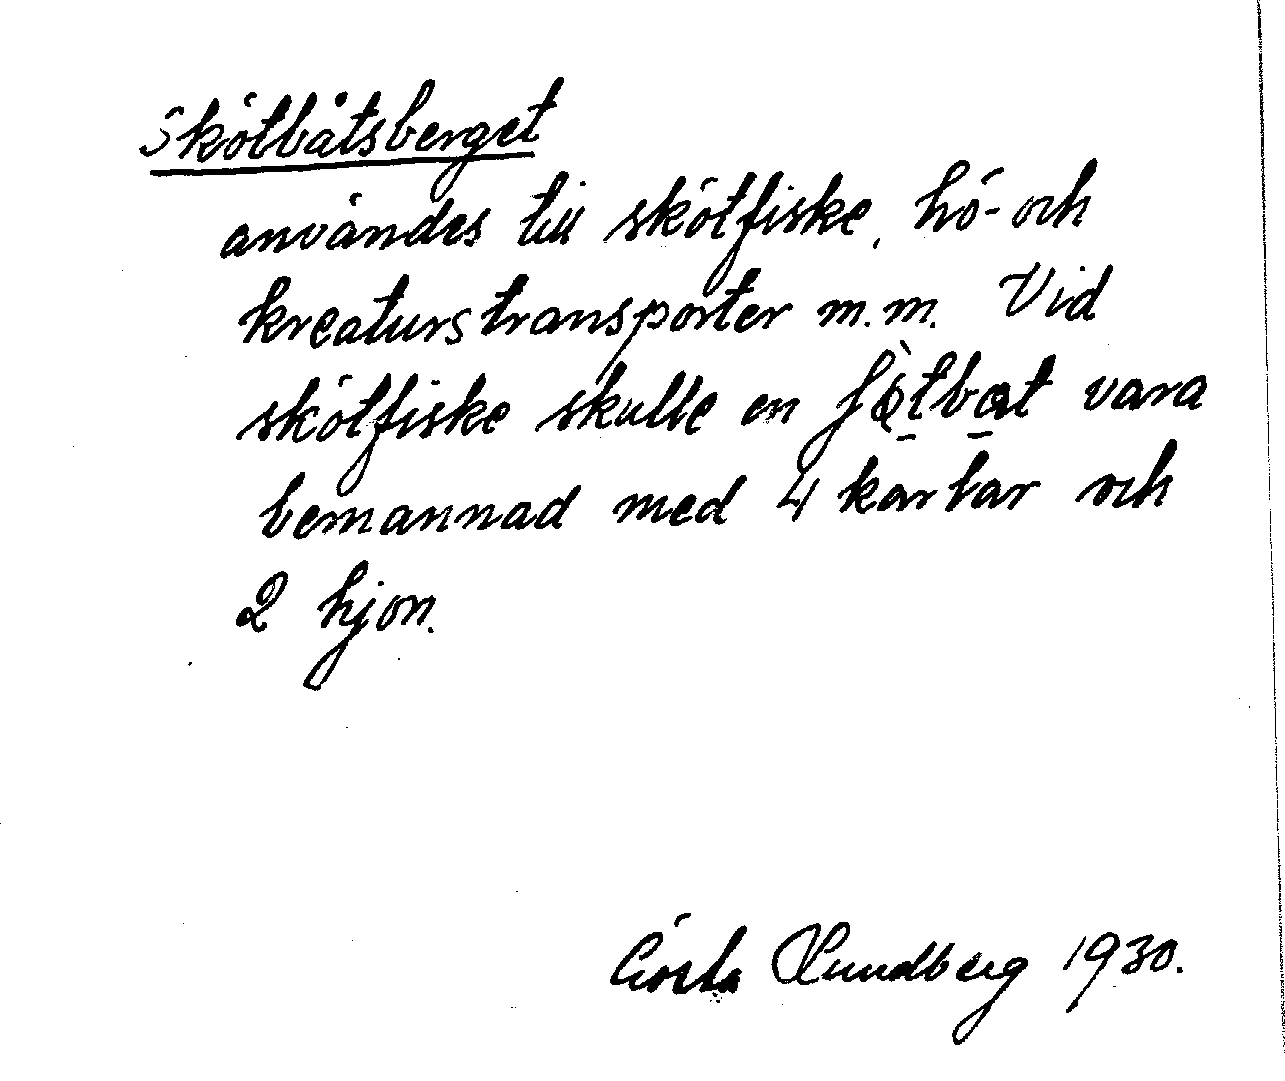 Skötbåtsberget
användes till skötfiske, hö- och
kreaturstransporter m.m. Vid
skötfiske skulle en vara
bemannad med 4 karlar och
2 hjon.
Gösta Lundberg 1930.